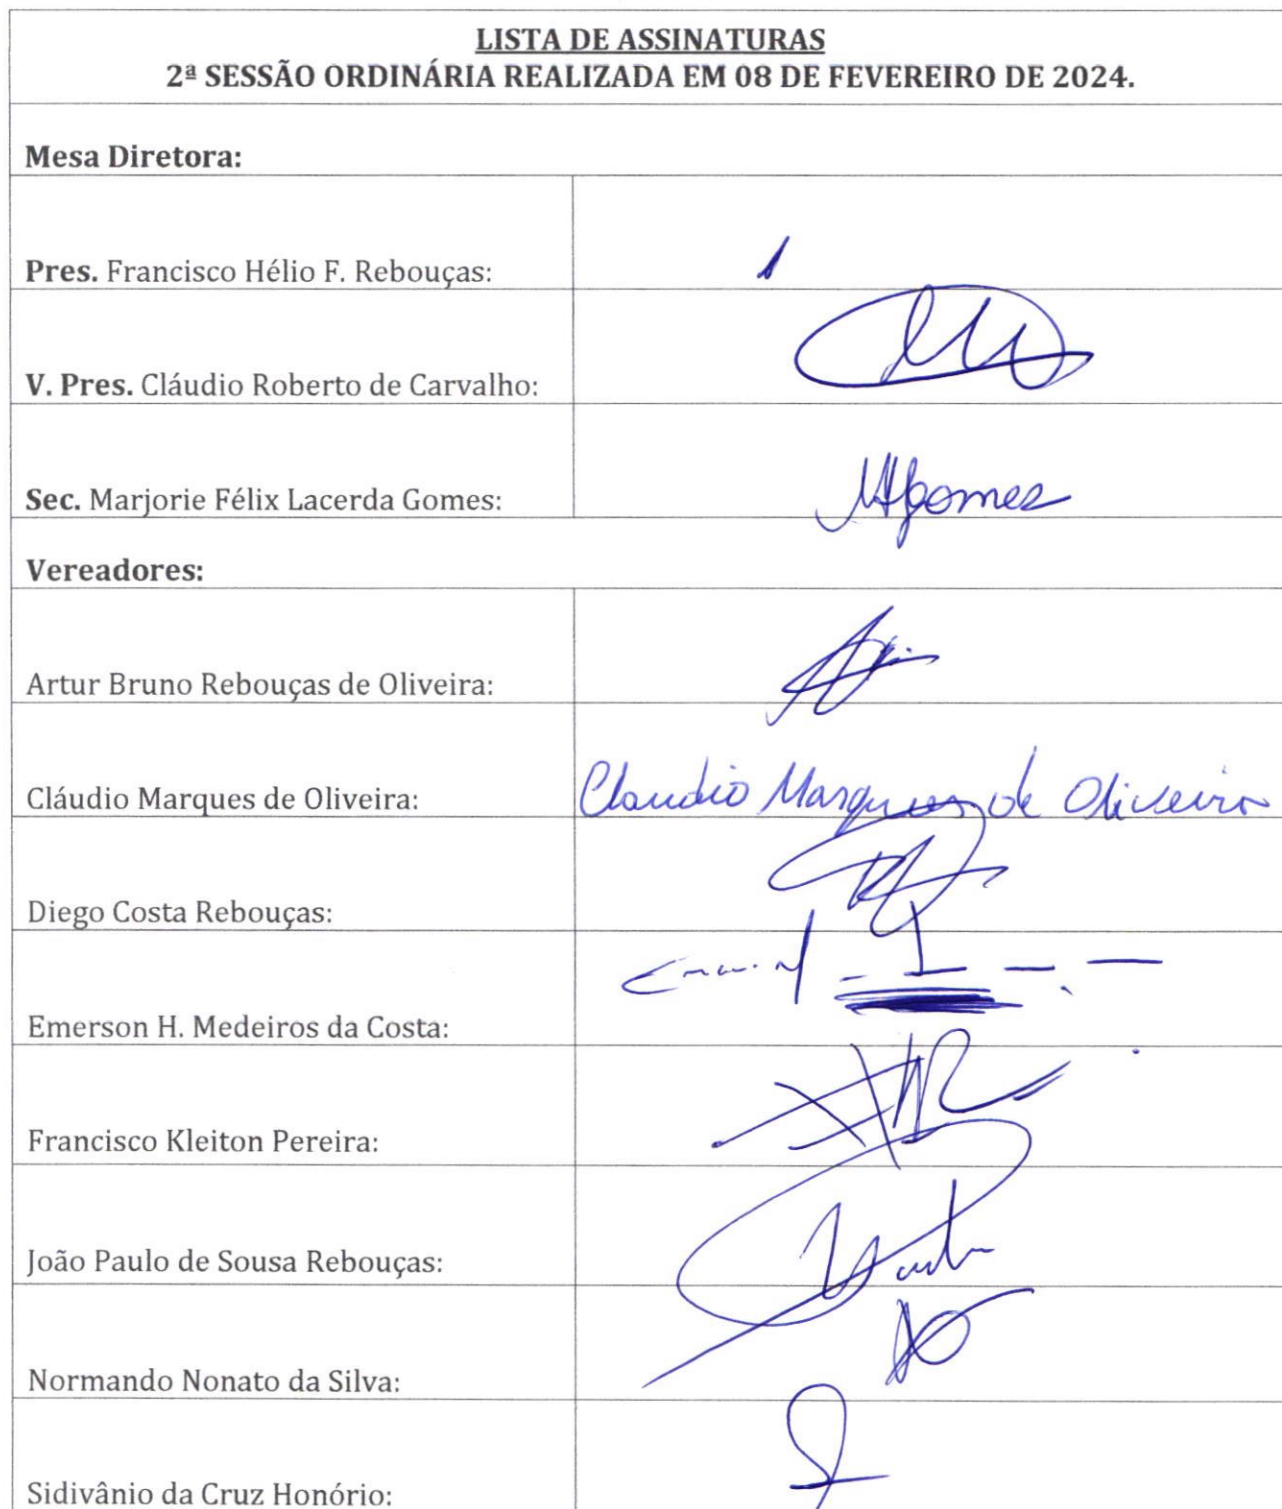 LISTA DE ASSINATURAS
2ª SESSÃO ORDINÁRIA REALIZADA EM 08 DE FEVEREIRO DE 2024.
Mesa Diretora:
Pres. Francisco Hélio F. Rebouças:
V. Pres. Cláudio Roberto de Carvalho:
Sec. Marjorie Félix Lacerda Gomes: MFGomes
Vereadores:
Artur Bruno Rebouças de Oliveira:
Cláudio Marques de Oliveira: Claudio Marques de Oliveira
Diego Costa Rebouças:
Emerson H. Medeiros da Costa:
Francisco Kleiton Pereira:
João Paulo de Sousa Rebouças:
Normando Nonato da Silva:
Sidivânio da Cruz Honório: